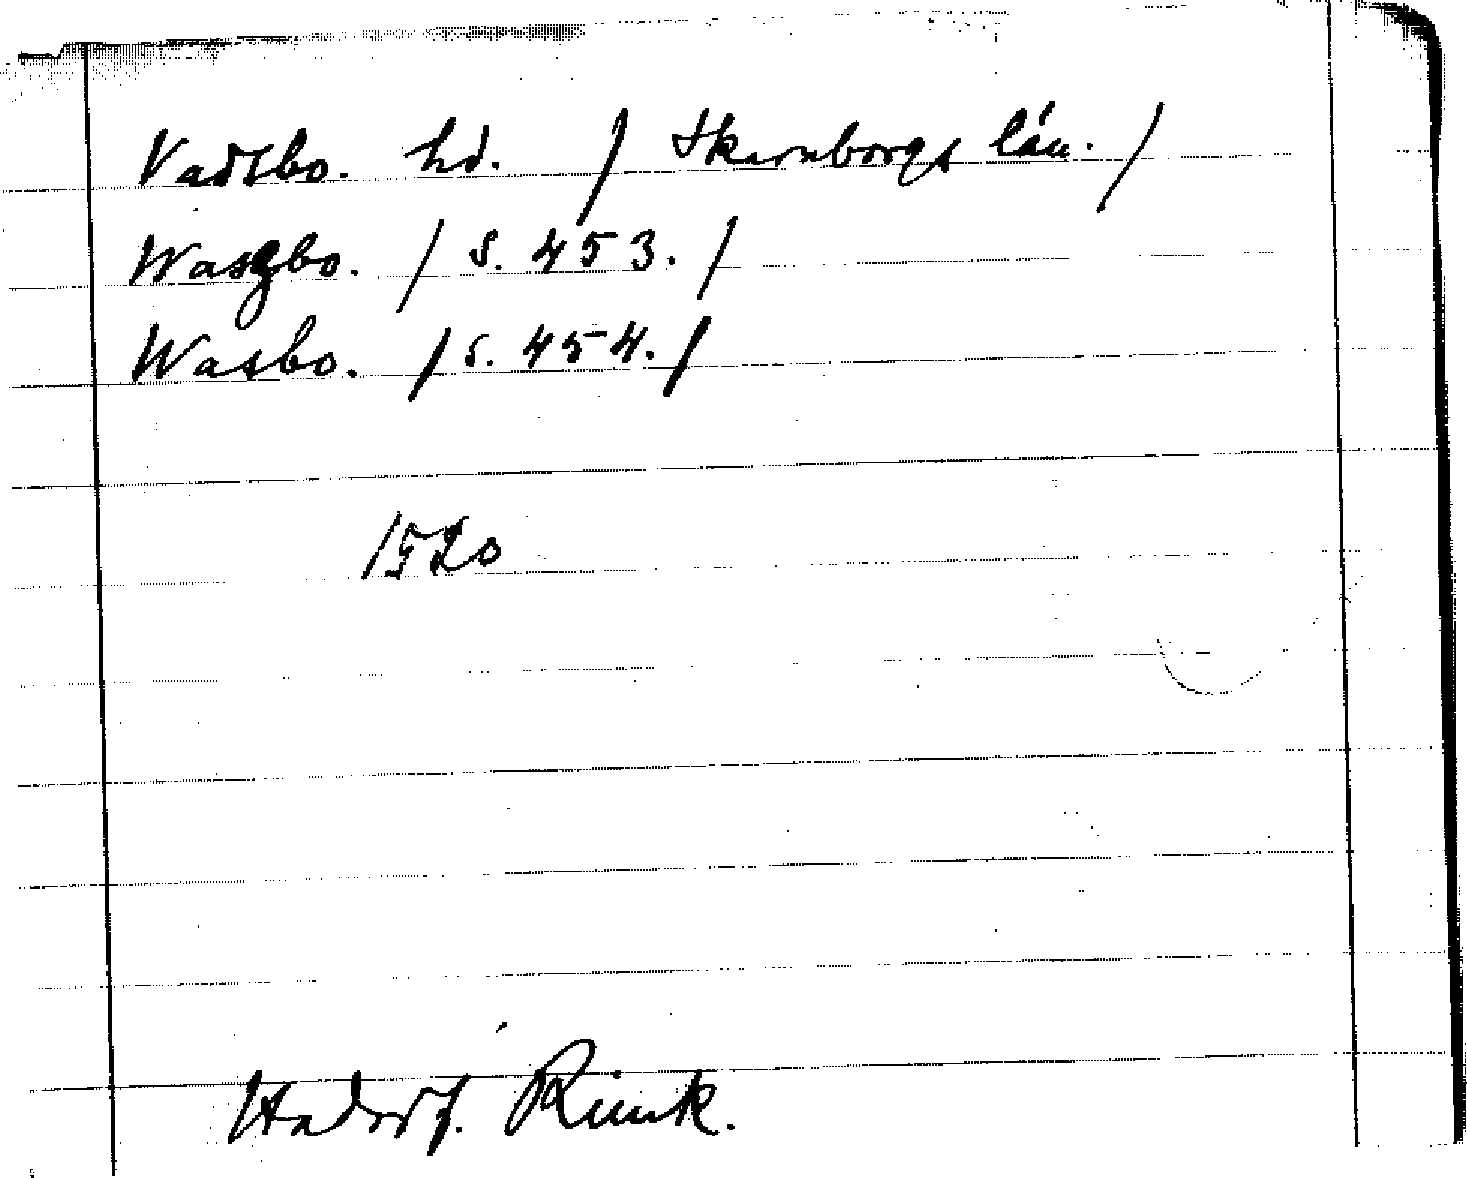 Vadsbo. hd. / Skaraborgs län. /
Waszbo. / s. 453. /
Wasbo. / s. 454. /
1520
Hadorf. Rimk.